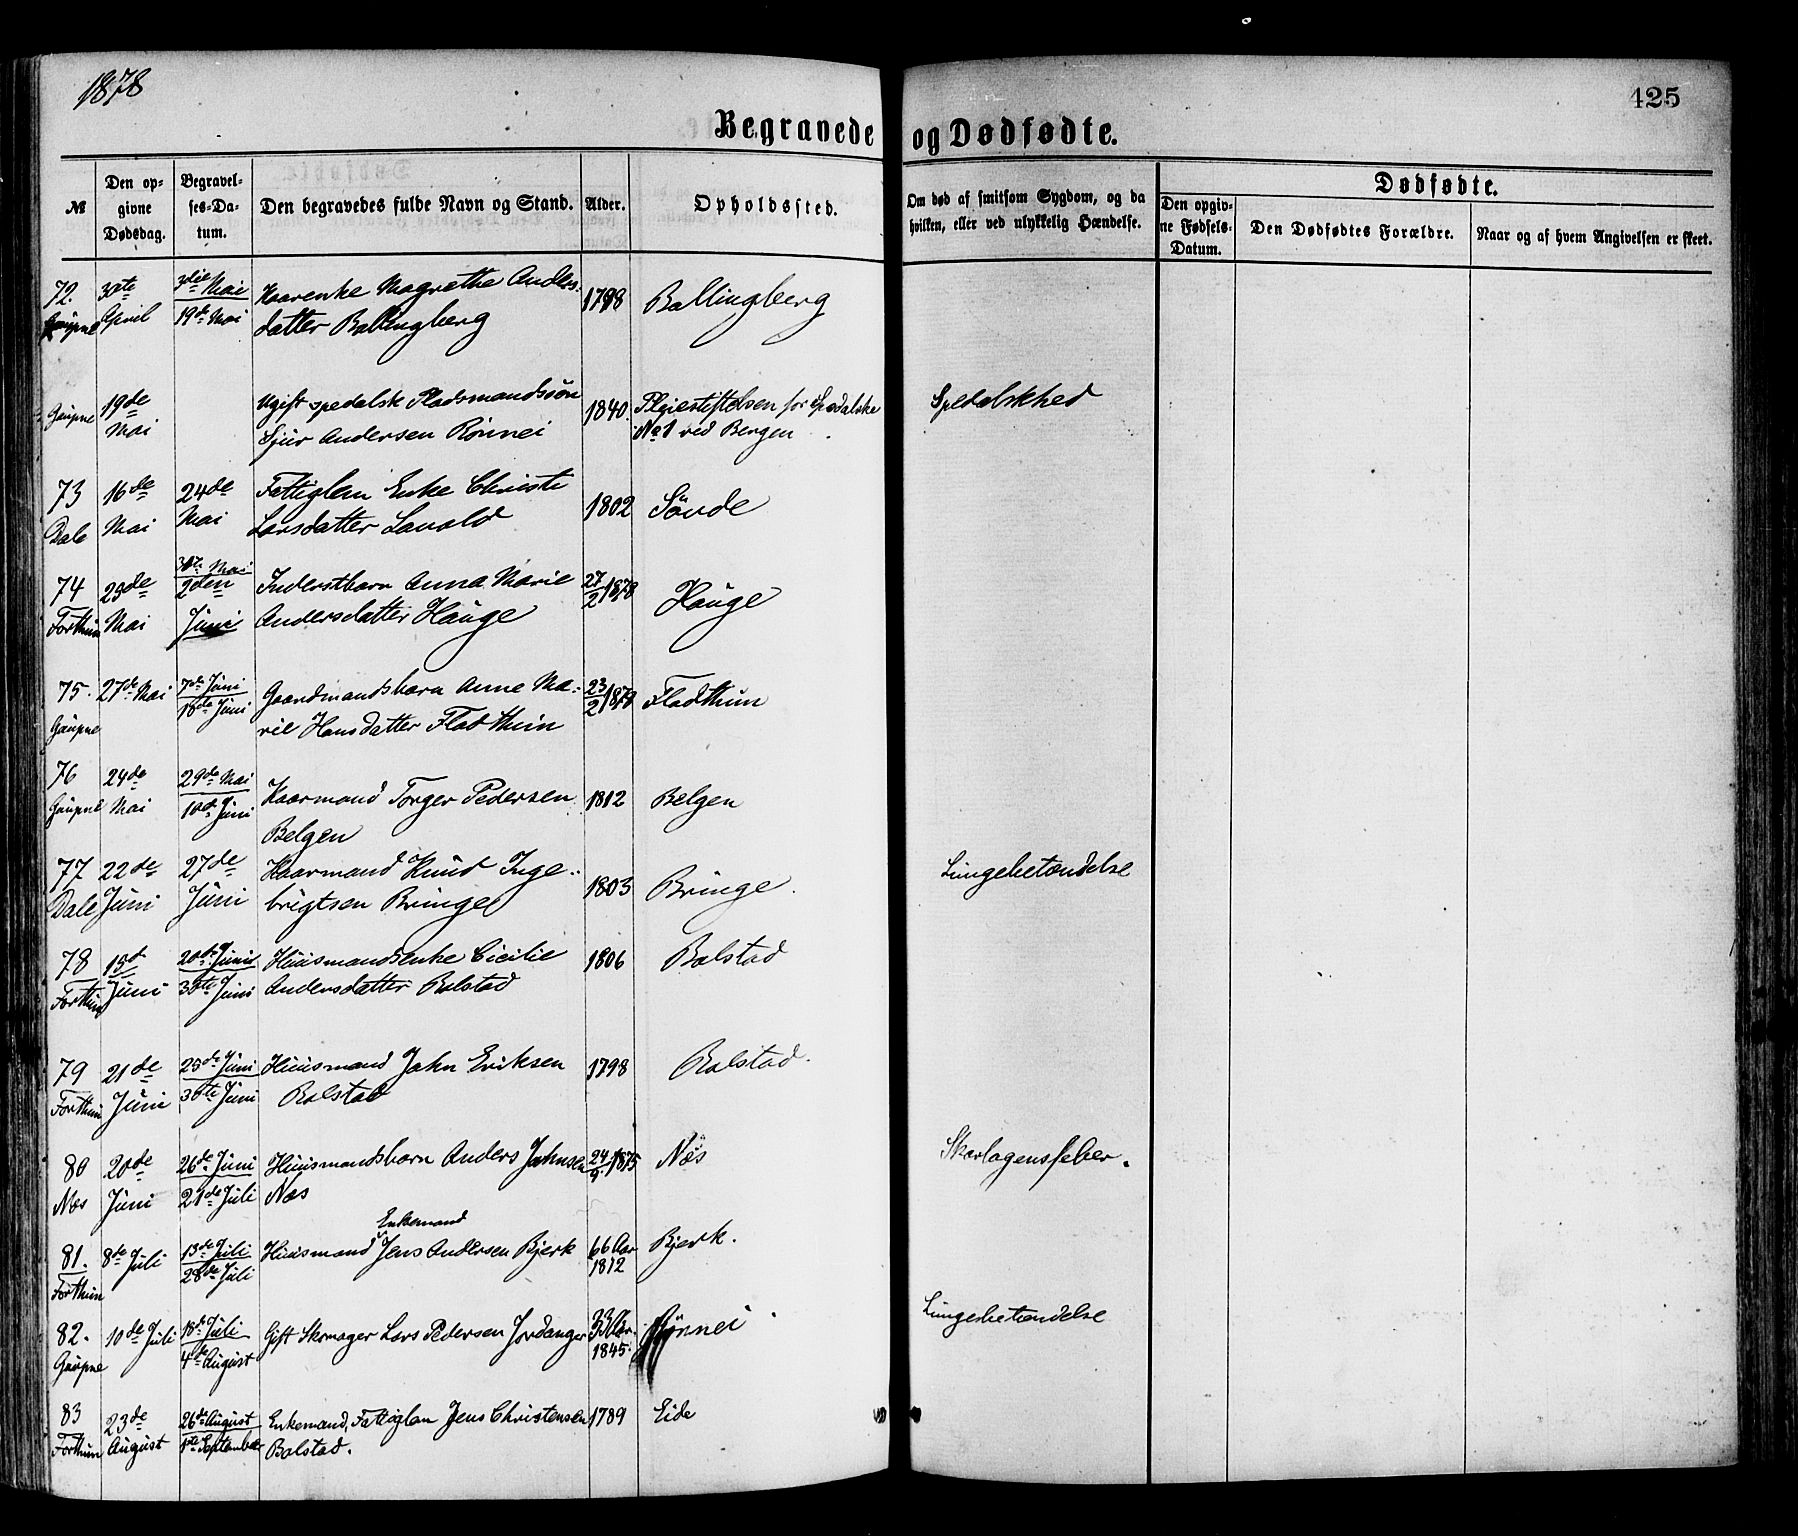 1878
425
Begravede og Dødfødte.
№
Den opgivne Dødsdag.
Begravelses-Datum.
Den begravedes fulde Navn og Stand.
Alder.
Opholdssted.
Om død af smitsom Sygdom, og da hvilken, eller ved ulykkelig Hændelse.
Dødfødte.
Den opgivne Fødsels-Datum.
Den Dødfødtes Forældre.
Naar og af hvem Angivelsen er skeet.
72. 30te 3die Mai Kaarenke Magrethe Anders- 1798 Ballingberg
Gaupne April 19de Mai datter Ballingberg
19de Ugift spedalsk Pladsmandssøn 1840. Pleiestiftelsen for Spedalske Spedalskhed
Gaupne Mai Sjur Andersen Rönnei No 1 ved Bergen
73 16de 24de Fattiglem Enke Christi 1802 Sönde
Dale Mai Mai Larsdatter Lavold
74 23de 30te Mai 2den Inderstbarn Anna Marie 27/2 1878 Hauge
Forthun Mai Juni Andersdatter Hauge
75. 27de Mai 7de Juni Gaardmandsbarn Anne Ma- 23/2 1878 Fladthun
Gaupne 18de Juni rie Hansdatter Fladthun
76 24de 29de Mai Kaarmand Torger Pedersen 1812 Belgen
Gaupne Mai 10de Juni Belgen
77 22de 27de Kaarmand Knud Inge- 1803 Bringe. Lungebetændelse
Dale Juni Juni brigtsen Bringe
78 15d 20de Juni Huusmandsenke Cicilie 1806 Bolstad
Forthun Juni 30te Juni Andersdatter Bolstad
79 21de 25de Juni Huusmand John Eriksen 1798 Bolstad.
Forthun Juni 30te Juni Bolstad
80 20de 26de Juni Huusmandsbarn Anders Johnsen 24/9 1875 Næs Skarlagensfeber.
Næs Juni 21de Juli Næs
Enkemand
81. 8de Juli 13de Juli Huusmand Jens Andersen Bjerk 66 Aar Bjerk.
Forthun 28de Juli 1812
82. 10de Juli 18de Juli Gift Skomager Lars Pedersen Jordanger 33 Aar. Rönnei Lungebetændelse
Gaupne 4de August 1845.
83 23de 26de August Enkemand, Fattiglem Jens Christensen 1789 Eide
Forthun August 1ste September Bolstad.